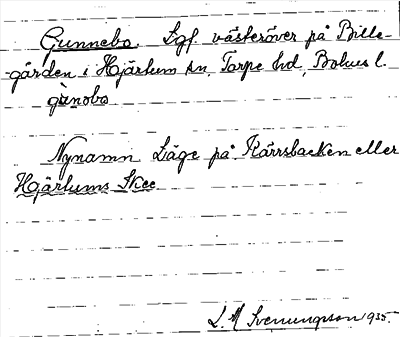 Gunnebo. Lgf. västeröver på Bille-
gården i Hjärtum sn, Torpe hd, Bohus l.
gùnobo
Nynamn Läge på Kärrsbacken eller
Hjärtums Skee
L. M Svenungsson 1935.